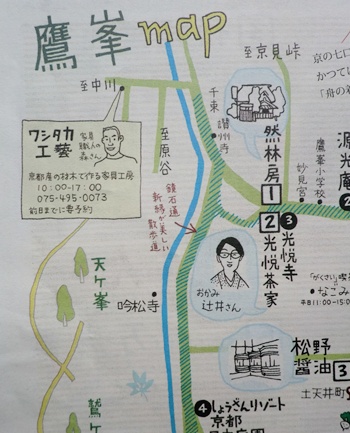 鷹峯 map
至中川
至京見峠
京の七口
かつてい
「舟の
ワシタカ
工藝
家具
職人の
森さん
京都産の材木で作る家具工房
10:00-17:00
075-495-0073
前日までに要予約
至原谷
千束
讃州寺
然林房 1
妙見宮
鷹峯小学校
源光庵 2
鏡石道
新緑が美しい
散歩道
2 光悦茶家
3 光悦寺
「がくさい」
なごみ
11:00-15:
おかみ
辻井さん
天ケ峯
吟松寺
松野
醤油 3
土天井町
鷲ケ
4 しょうざんリゾート
京都